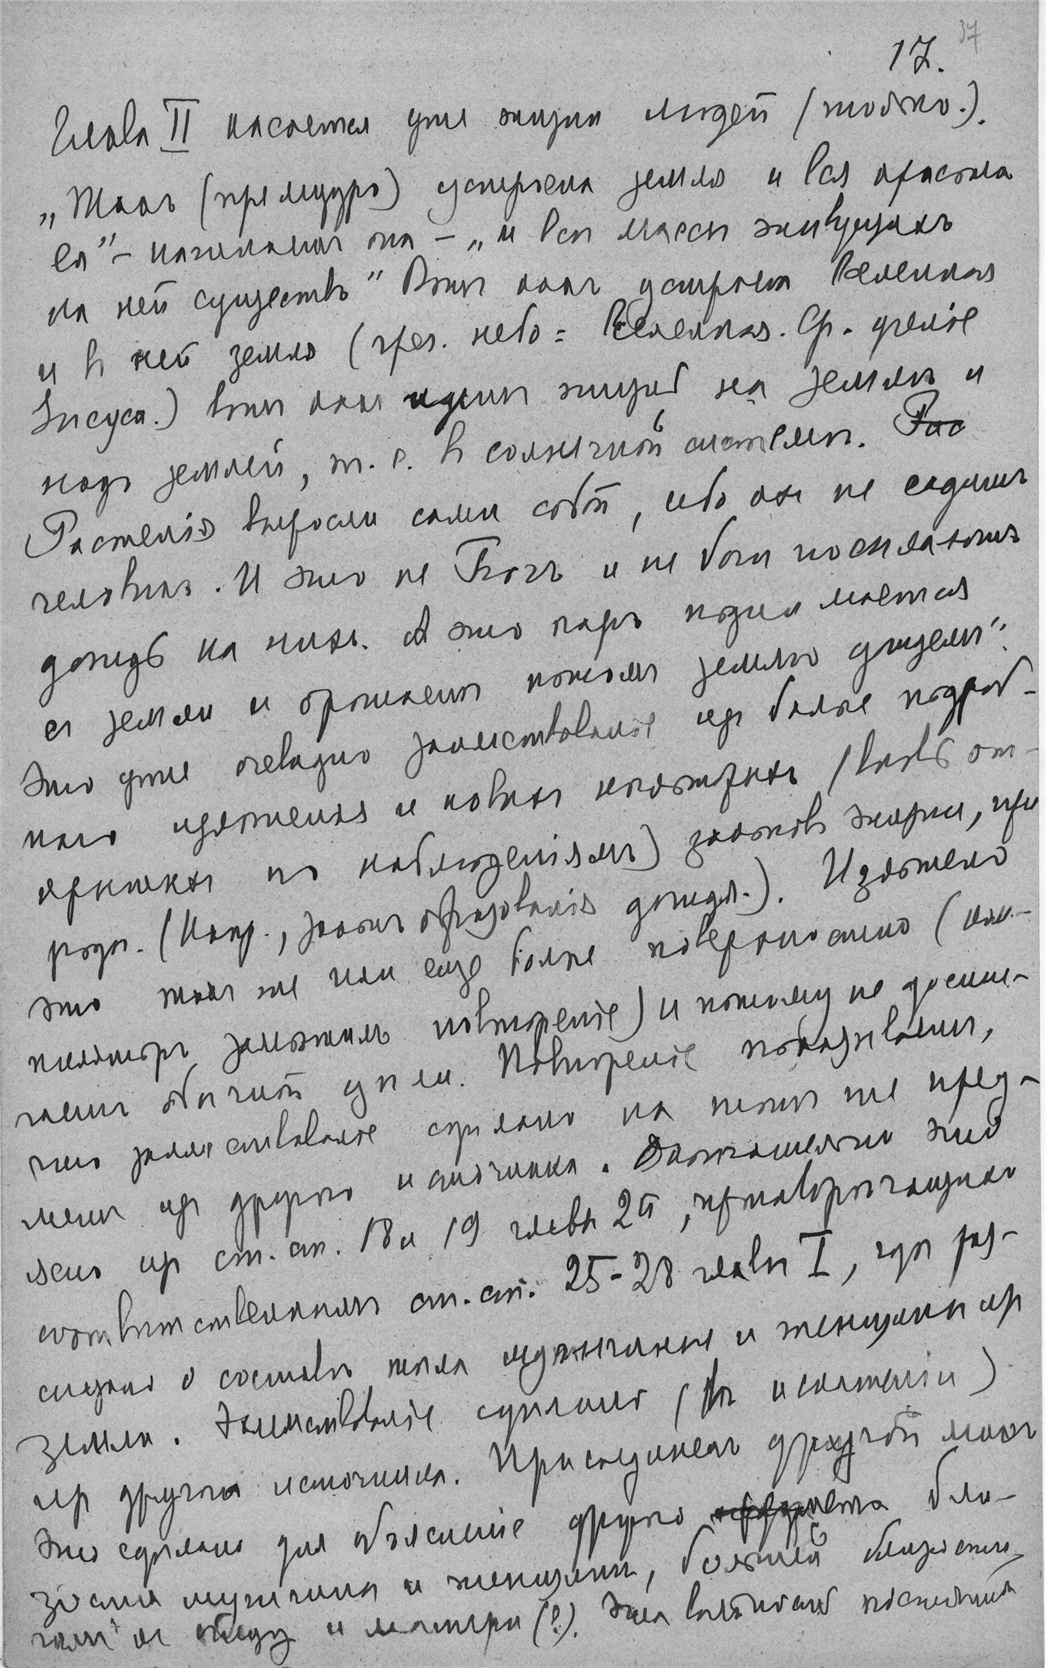 37
17.
Глава II касается уже жизни людей (только.).
„Такъ (премудро) устроена земля и вся красота
ея" – начинаетъ она – „и всѣ массы живущихъ
на ней существъ" Вотъ какъ устроена Вселенная
и въ ней земля (греч. небо = Вселенная. Ср. ученіе
Іисуса.) вотъ какъ идетъ жизнь на землѣ и
надъ землей, т. е. въ солнечной системѣ. Рас
Растенія выросли сами собой, ибо ихъ не садилъ
человѣкъ. И это не Богъ и не боги посылаютъ
дождь на нихъ. А это паръ поднимается
съ земли и орошаетъ потомъ землю дождемъ".
Это уже очевидно заимствованіе изъ болѣе подроб-
наго изложенія и новыхъ непонятныхъ (вновь от-
крытыхъ по наблюденіямъ) законовъ жизни, при
роды. (Напр., законъ образованія дождя.). Изложено
это такъ же или еще болѣе поверхностно (ком-
пиляторъ замѣтилъ повтореніе) и потому не дости-
гаетъ обычной цѣли. Повтореніе показываетъ,
что заимствованіе сдѣлано на тотъ же пред-
метъ изъ другого источника. Окончательно это
ясно изъ ст. ст. 18 и 19 главы 2й, противорѣчащихъ
соотвѣтственнымъ ст. ст. 25-28 главы I, гдѣ раз-
сказано о составѣ тѣла мужчины и женщины изъ
земли. Заимствованіе сдѣлано (въ искаженіи)
изъ другого источника. Присоединенъ другой
Это сдѣлано для объясненія другого бли-
зости мужчины и женщины, большей
къ отцу и матери (?). Эта послѣдняя